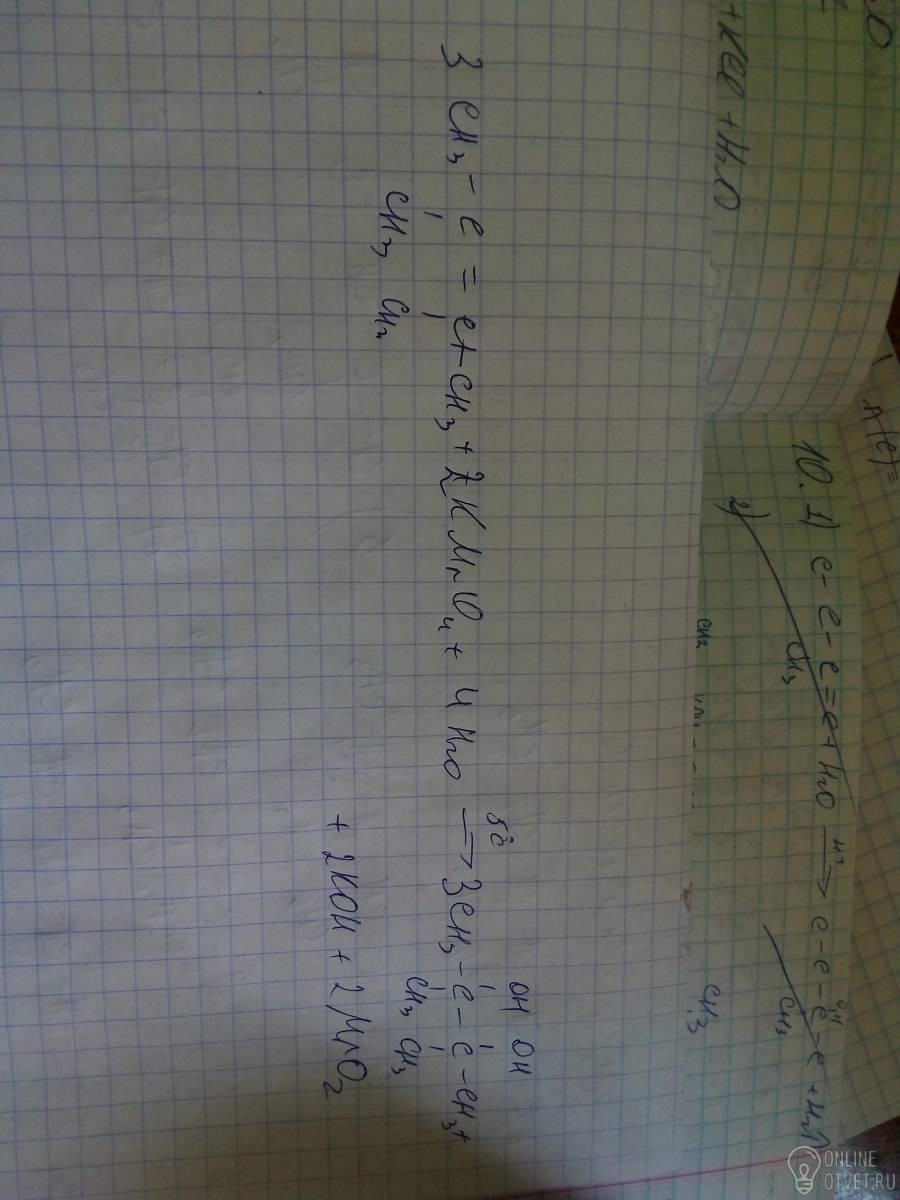 + KCl + H₂O
10. 1) C - C - C = C + H₂O → C - C - C - C + H₂O
H⁺
OH
2)
CH₃
CH₃
CH₂
CH₃
5°C
OH OH
3 CH₃ - C = C - CH₃ + 2 KMnO₄ + 4 H₂O → 3CH₃ - C - C - CH₃ +
CH₃ CH₃
CH₃ CH₃
+ 2KOH + 2 MnO₂
ONLINE
OTVET.RU